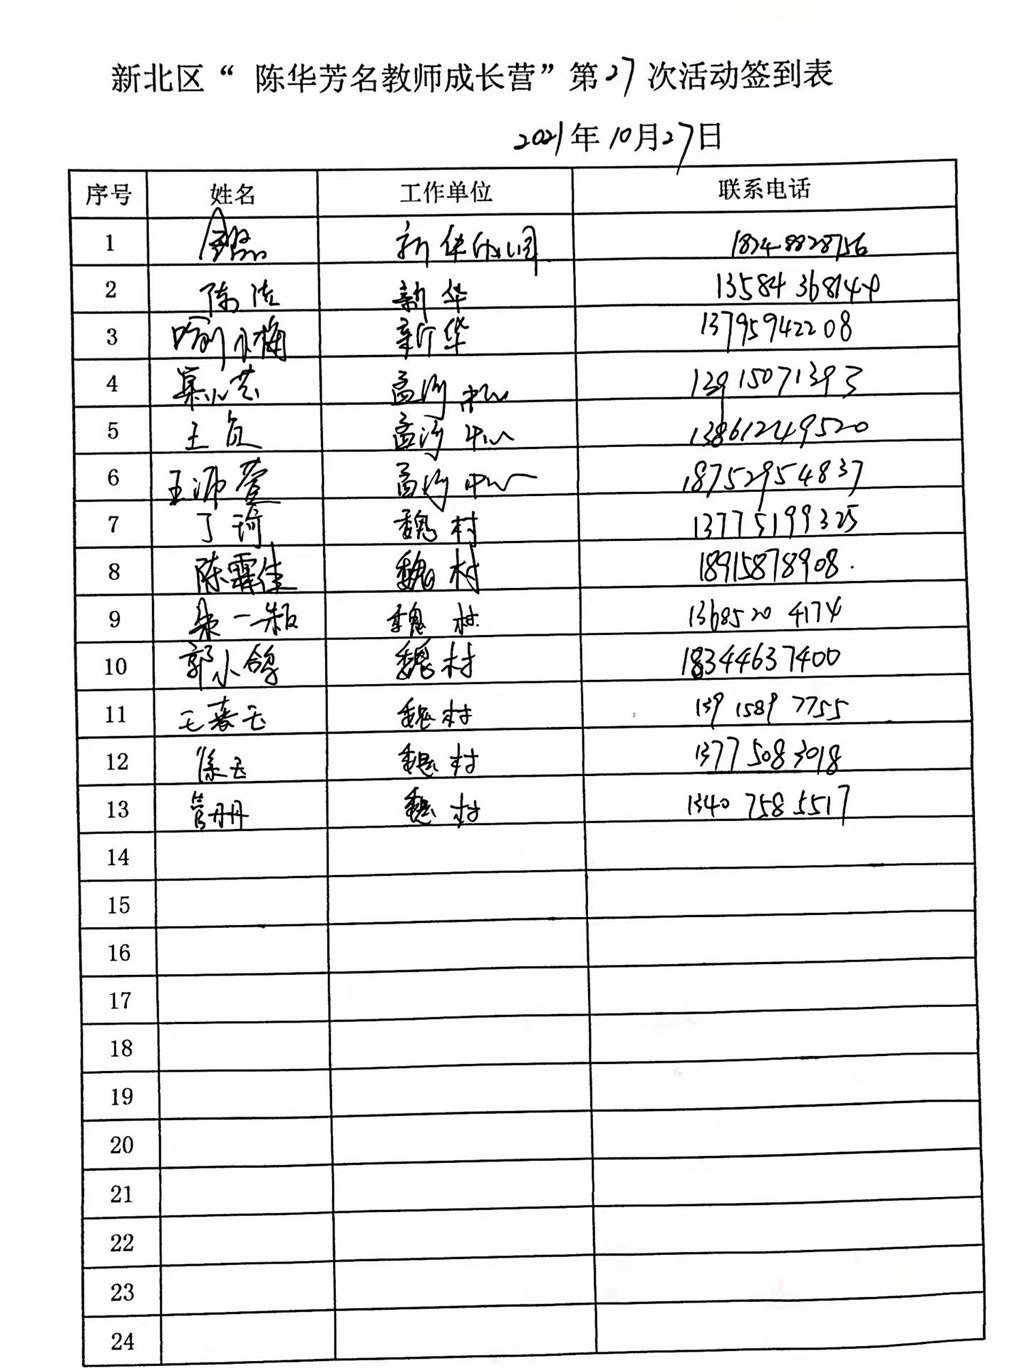 新北区“ 陈华芳名教师成长营”第27次活动签到表
2021年10月27日
序号 姓名 工作单位 联系电话
1 新华幼儿园 18248828756
2 陈洁 新华 13584368144
3 喻小梅 新华 13795942208
4 孟河中心 13915071393
5 王贞 孟河中心 13861249520
6 王沛萱 孟河中心 18752954837
7 丁琦 魏村 13775199325
8 陈霏佳 魏村 18915878908.
9 朱一和 魏村 13685204174
10 郭小鸽 魏村 18344637400
11 王春玉 魏村 13915897755
12 徐玉 魏村 13775083018
13 管丹丹 魏村 13407585517
14
15
16
17
18
19
20
21
22
23
24